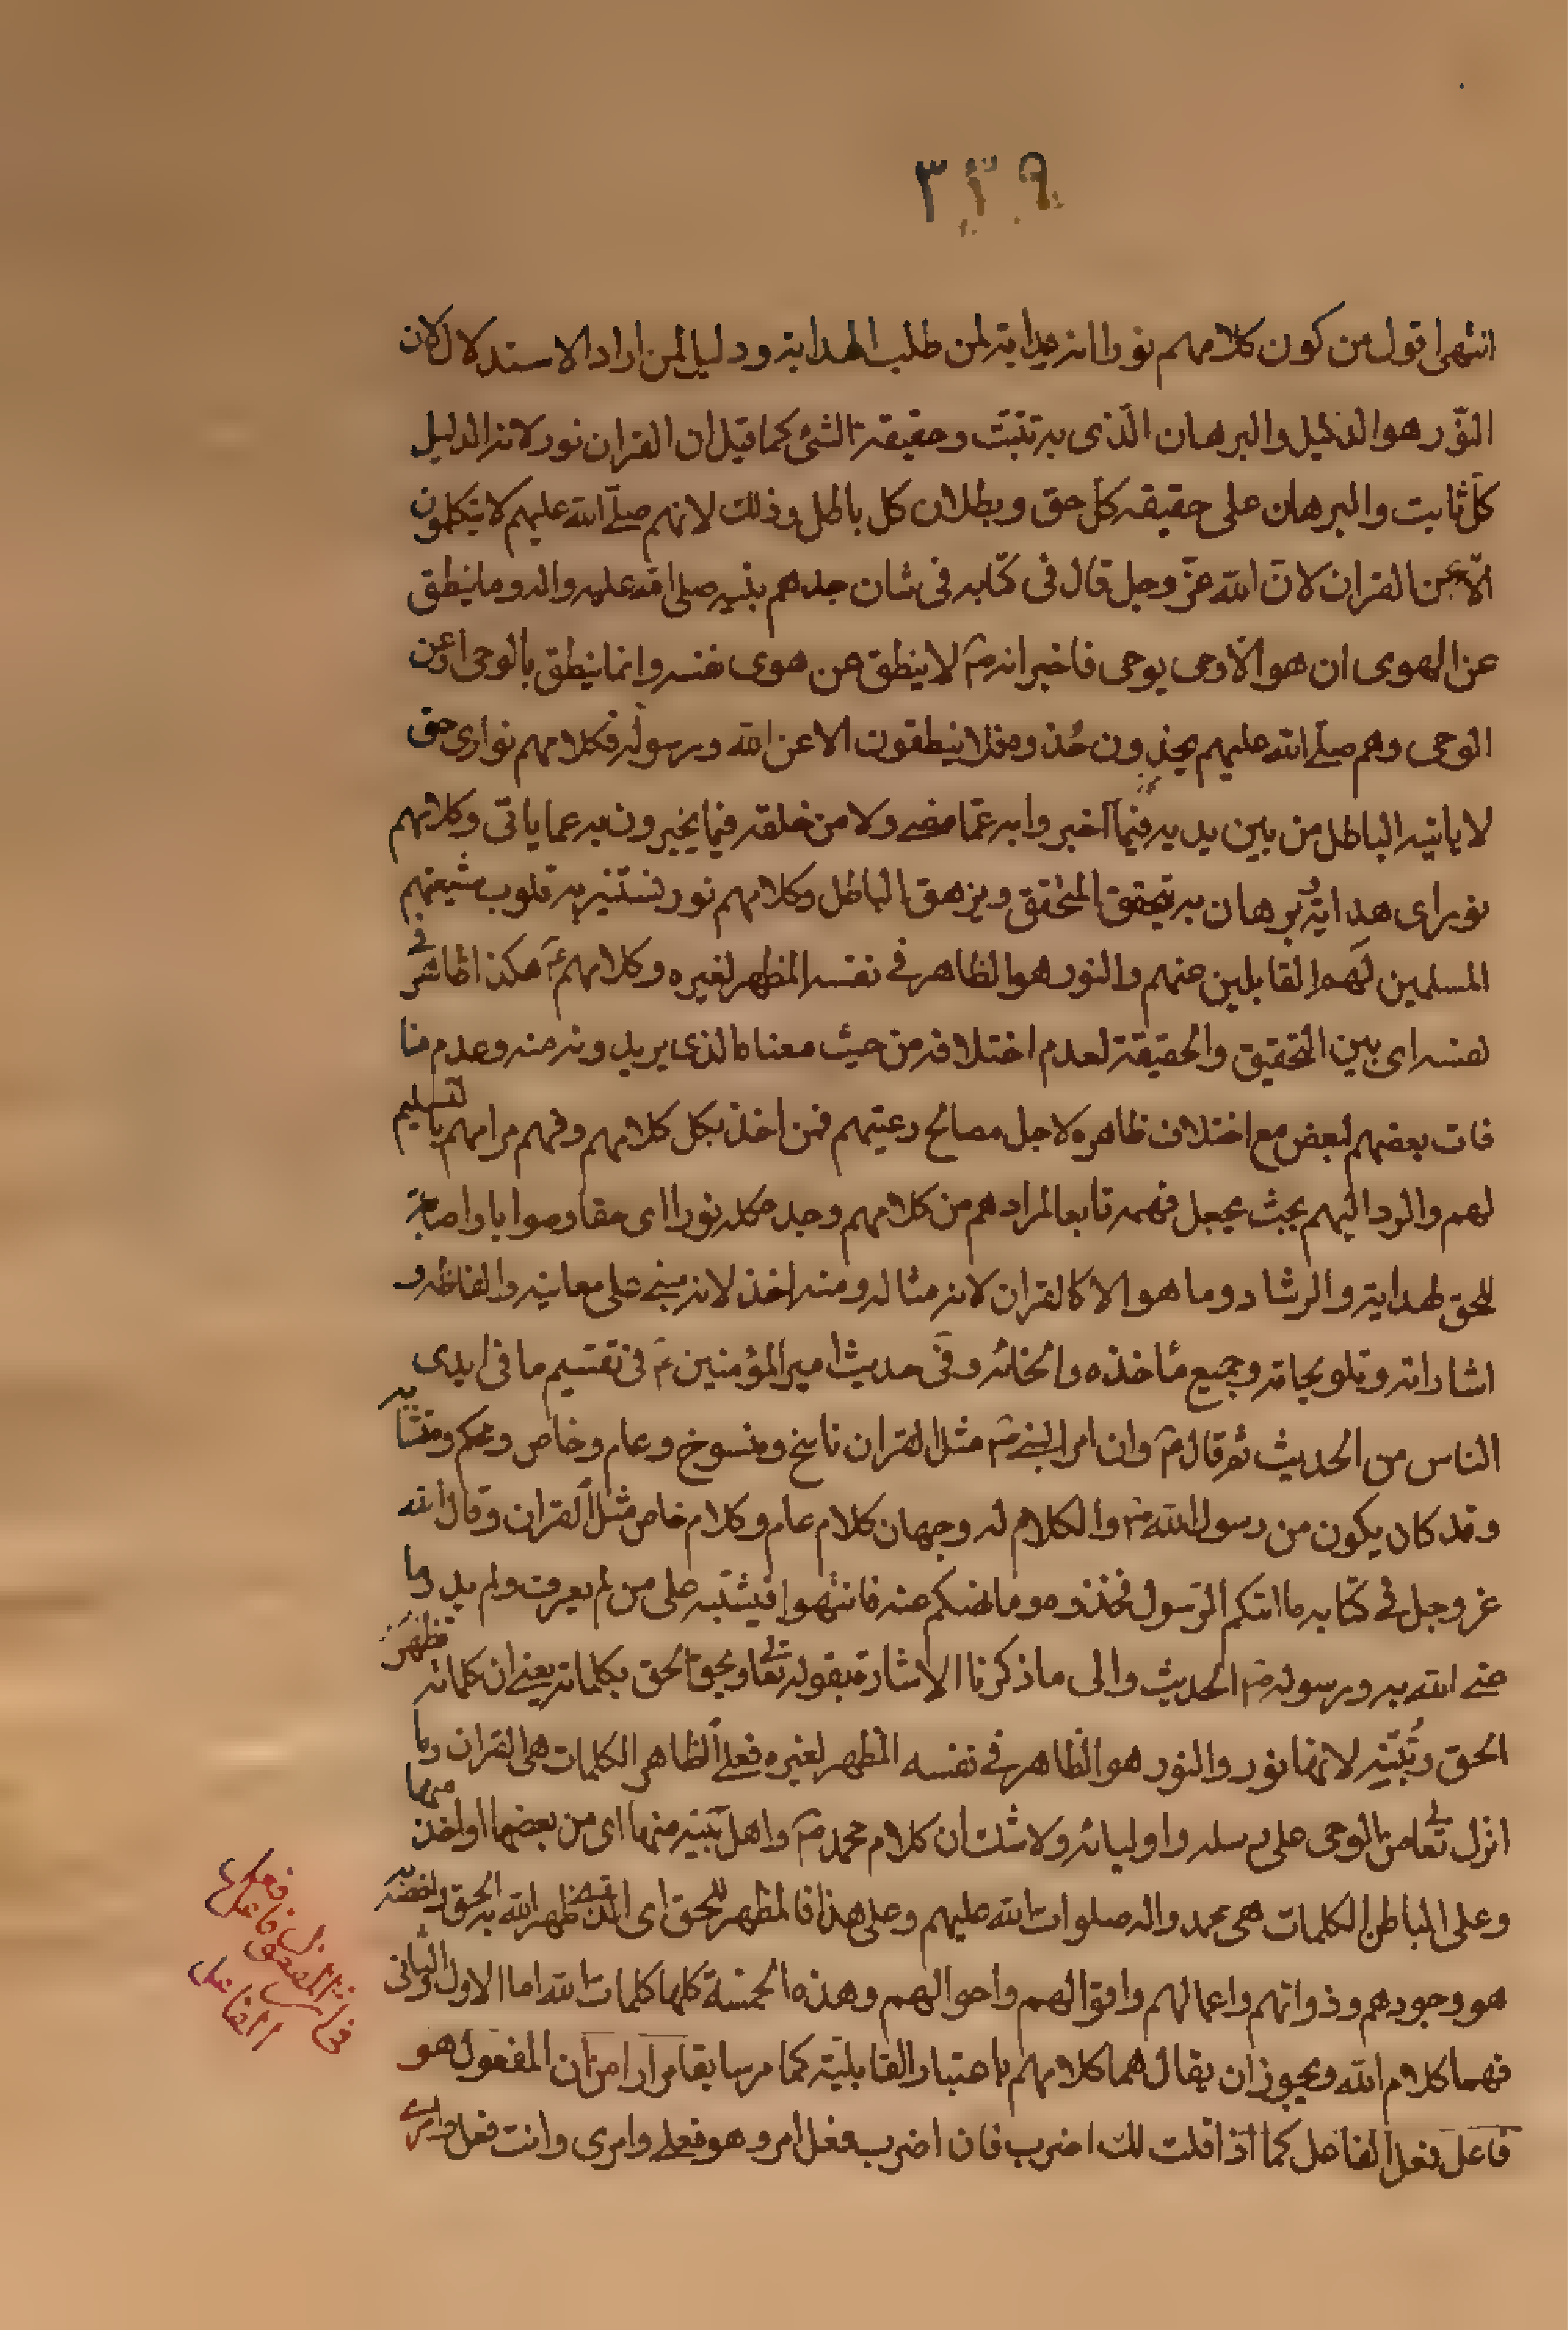 ٣٢٩
انتهى اقول من كون كلامهم نورا انه هداية لمن طلب الهداية ودليل لمن اراد الاستدلال لان
النّور هو الدليل والبرهان الّذى به تثبت وحقيقة الشئ كما قيل ان القران نور لانه الدليل
كلّ ثابت والبرهان على حقيقه كلّ حق وبطلان كل باطل وذلك لانهم صلّى الله عليهم لا يتكلمون
الّا عن القران لانّ الله عزّ وجل قال فى كتابه فى شان جدهم بنبيه صلى الله عليه واله وما ينطق
عن الهوى ان هو الّا وحى يوحى فاخبر انه ص لا ينطق عن هوى نفسه وانما ينطق بالوحى او عن
الوحى وهم صلّى الله عليهم يحذون حذوه فلا ينطقون الا عن الله ورسوله فكلامهم نور اى حق
لا ياتيه الباطل من بين يديه فيما اخبروا به عمّا مضى ولا من خلفه فيما يخبرون به عما ياتى وكلامهم
نور اى هداية برهان به يتحقق المتحقق ويزهق الباطل وكلامهم نور تستنير به قلوب شيعتهم
المسلمين لهم القابلين عنهم والنور هو الظاهر فى نفسه المظهر لغيره وكلامهم ع هكذا ظاهر فى
نفسه اى بين التحقيق والحقيقة لعدم اختلافه من حيث معناه الذى يريدونه منه وعدم منا
فات بعضهم لبعض مع اختلاف ظاهره لاجل مصالح رعيتهم فمن اخذ بكل كلامهم وفهم مرامهم بالتسليم
لهم والرد اليهم بحيث يجعل فهمه تابعا لمرادهم من كلامهم وجد كله نورا اى حقا وصوابا واصابة
للحق لهداية والرشاد وما هو الا كالقران لانه مثاله ومنه اخذ لانه مبنى على معانيه والفاظه و
اشاراته وتلويحاته وجميع مأخذه وانحائه وفى حديث امير المؤمنين ع فى تقسيم ما فى ايدى
الناس من الحديث ثم قال ع وان امر النبى ص مثل القران ناسخ ومنسوخ وعام وخاص ومحكم ومتشابه
وقد كان يكون من رسول الله ص والكلام له وجهان كلام عام وكلام خاص مثل القران وقال الله
عز وجل فى كتابه ما اتيكم الرّسول فخذوه وما نهيكم عنه فانتهوا فيشتبه على من لم يعرف ولم يدر ما
عنى الله به ورسوله ص الحديث والى ما ذكرنا الاشارة بقوله تعالى ويحق الحق بكلماته يعنى ان كلماته تظهر
الحق وتُبيّنه لانها نور والنور هو الظاهر فى نفسه المظهر لغيره فعلى الظاهر الكلمات هى القران وما
انزل تعالى من الوحى على رسله واوليائه ولا شك ان كلام محمد ص واهل بيته منها اى من بعضها او اخذ منها
وعلى الباطن الكلمات هى محمد واله صلوات الله عليهم وعلى هذا فالمظهر للحق اى الذى يظهر الله به الحق
هو وجودهم وذواتهم واعمالهم واقوالهم واحوالهم وهذه الخمسة كلها كلمات الله اما الاول والثانى
فهما كلام الله ويجوز ان يقال هما كلامهم باعتبار القابلية كما مر سابقا مرارا من ان المفعول هو
فاعل فعل الفاعل كما اذا قلت لك اضرب فان اضرب فعل امر وهو فعلى وامرى وانت فعل